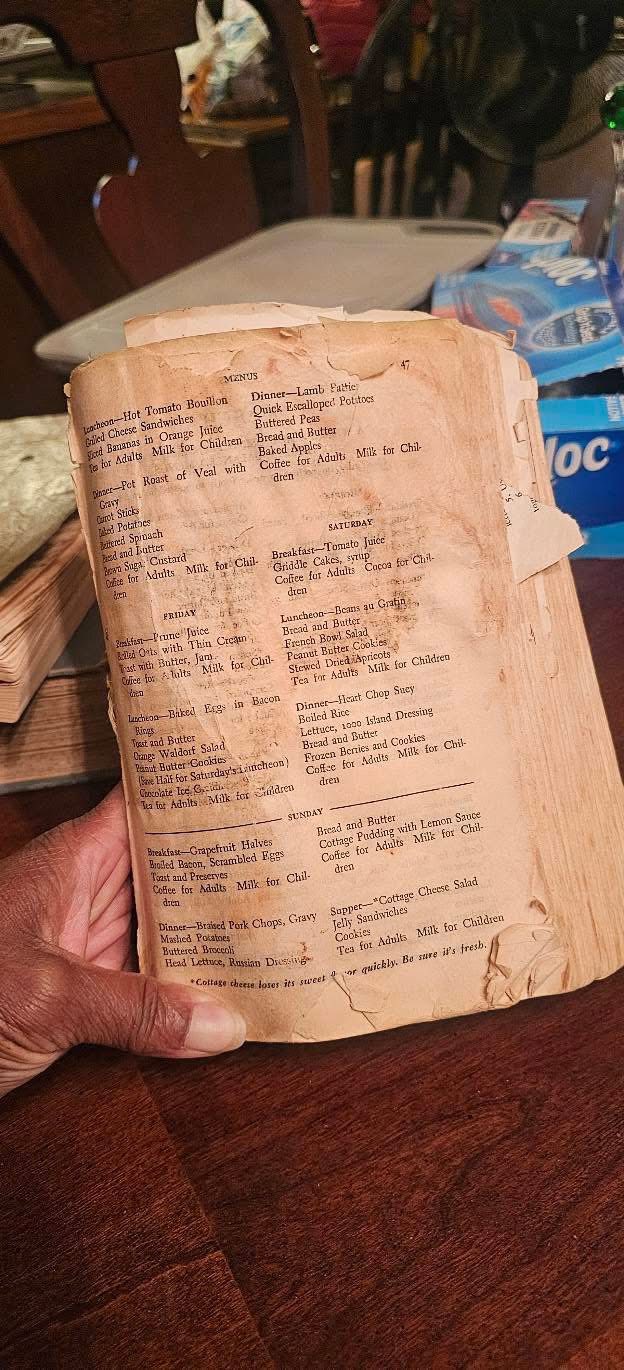 MENUS
47
Luncheon—Hot Tomato Bouillon
Grilled Cheese Sandwiches
Sliced Bananas in Orange Juice
Tea for Adults Milk for Children
Dinner—Pot Roast of Veal with
Gravy
Carrot Sticks
Baked Potatoes
Buttered Spinach
Bread and Butter
Brown Sugar Custard
Coffee for Adults Milk for Chil-
dren
FRIDAY
Breakfast—Prune Juice
Rolled Oats with Thin Cream
Toast with Butter, Jam
Coffee for Adults Milk for Chil-
dren
Luncheon—Baked Eggs in Bacon
Rings
Toast and Butter
Orange Waldorf Salad
Peanut Butter Cookies
(Save Half for Saturday's Luncheon)
Chocolate Ice
Tea for Adults Milk for Children
Dinner—Lamb Patties
Quick Escalloped Potatoes
Buttered Peas
Bread and Butter
Baked Apples
Coffee for Adults Milk for Chil-
dren
SATURDAY
Breakfast—Tomato Juice
Griddle Cakes, syrup
Coffee for Adults Cocoa for Chil-
dren
Luncheon—Beans au Gratin
Bread and Butter
French Bowl Salad
Peanut Butter Cookies
Stewed Dried Apricots
Tea for Adults Milk for Children
Dinner—Heart Chop Suey
Boiled Rice
Lettuce, 1000 Island Dressing
Bread and Butter
Frozen Berries and Cookies
Coffee for Adults Milk for Chil-
dren
SUNDAY
Breakfast—Grapefruit Halves
Broiled Bacon, Scrambled Eggs
Toast and Preserves
Coffee for Adults Milk for Chil-
dren
Dinner—Braised Pork Chops, Gravy
Mashed Potatoes
Buttered Broccoli
Head Lettuce, Russian Dressing
Bread and Butter
Cottage Pudding with Lemon Sauce
Coffee for Adults Milk for Chil-
dren
Supper—*Cottage Cheese Salad
Jelly Sandwiches
Cookies
Tea for Adults Milk for Children
*Cottage cheese loses its sweet flavor quickly. Be sure it's fresh.
loc